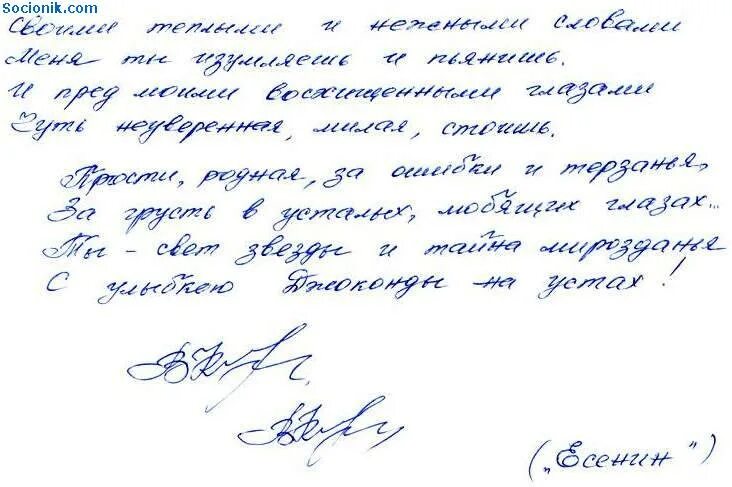 Socionik.com
Своими теплыми и нежными словами
Меня ты изумляешь и пьянишь.
И пред моими восхищенными глазами
Чуть неуверенная, милая, стоишь.
Прости, родная, за ошибки и терзанья,
За грусть в усталых, любящих глазах...
Ты - свет звезды и тайна мирозданья
С улыбкею Джоконды на устах!
("Есенин")